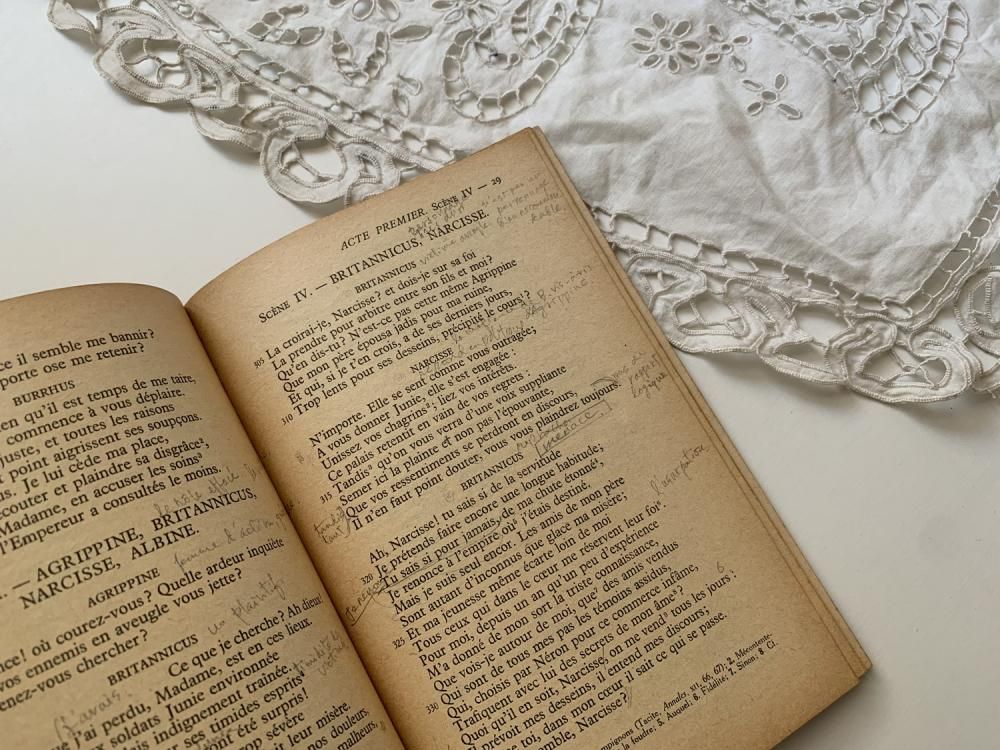 ce il semble me bannir?
porte ose me retenir?
BURRHUS
en qu'il est temps de me taire,
commence à vous déplaire.
juste, et toutes les raisons
point aigrissent ses soupçons.
us. Je lui cède ma place,
écouter et plaindre sa disgrâce²,
Madame, en accuser les soins³,
l'Empereur a consultés le moins.
— AGRIPPINE, BRITANNICUS,
NARCISSE, ALBINE.
AGRIPPINE
nce! où courez-vous? Quelle ardeur inquiète
vos ennemis en aveugle vous jette?
venez-vous chercher?
BRITANNICUS
Ce que je cherche? Ah dieux!
que j'ai perdu, Madame, est en ces lieux.
soldats Junie environnée
vu mais indignement traînée.
ses timides esprits
ront été surpris!
trop sévère
leur misère.
nos douleurs,
malheurs,
ACTE PREMIER. SCÈNE IV — 29
SCÈNE IV. — BRITANNICUS, NARCISSE.
BRITANNICUS
305 La croirai-je, Narcisse? et dois-je sur sa foi
La prendre pour arbitre entre son fils et moi?
Qu'en dis-tu? N'est-ce pas cette même Agrippine
Que mon père épousa jadis pour ma ruine,
Et qui, si je t'en crois, a de ses derniers jours,
310 Trop lents pour ses desseins, précipité le cours¹?
NARCISSE
N'importe. Elle se sent comme vous outragée;
A vous donner Junie, elle s'est engagée :
Unissez vos chagrins²; liez vos intérêts.
Ce palais retentit en vain de vos regrets :
315 Tandis³ qu'on vous verra d'une voix suppliante
Semer ici la plainte et non pas l'épouvante,
Que vos ressentiments se perdront en discours,
Il n'en faut point douter, vous vous plaindrez toujours.
menace
BRITANNICUS
Ah, Narcisse! tu sais si de la servitude
320 Je prétends faire encore une longue habitude;
Tu sais si pour jamais, de ma chute étonné⁴,
Je renonce à l'empire où⁵ j'étais destiné.
Mais je suis seul encor. Les amis de mon père
Sont autant d'inconnus que glace ma misère;
325 Et ma jeunesse même écarte loin de moi
Tous ceux qui dans le cœur me réservent leur foi⁶.
Pour moi, depuis un an qu'un peu d'expérience
M'a donné de mon sort la triste connaissance,
Que vois-je autour de moi, que⁷ des amis vendus
330 Qui sont de tous mes pas les témoins assidus,
Qui, choisis par Néron pour ce commerce infâme,
Trafiquent avec lui des secrets de mon âme⁸?
Quoi qu'il en soit, Narcisse, on me vend⁹ tous les jours :
Il prévoit mes desseins, il entend mes discours;
e toi, dans mon cœur, il sait ce qui se passe.
emble, Narcisse?
mpignons (Tacite, Annales, XII, 66, 67); 2. Mécontente-
la foudre; 5. Auquel; 6. Fidélité; 7. Sinon; 8. Cf.